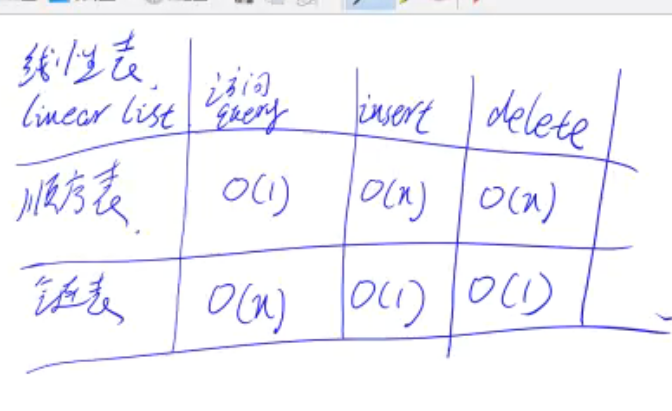 线性表
linear list
访问
query
insert
delete
顺序表
O(1)
O(n)
O(n)
链表
O(n)
O(1)
O(1)